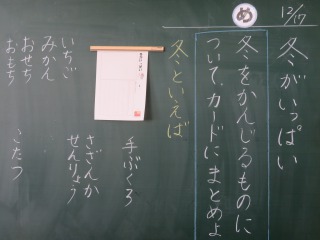 12/17
冬がいっぱい
め
冬をかんじるものに
ついて、カードにまとめよ
冬といえば
手ぶくろ
さざんか
せんりょう
こたつ
いちご
みかん
おせち
おもち